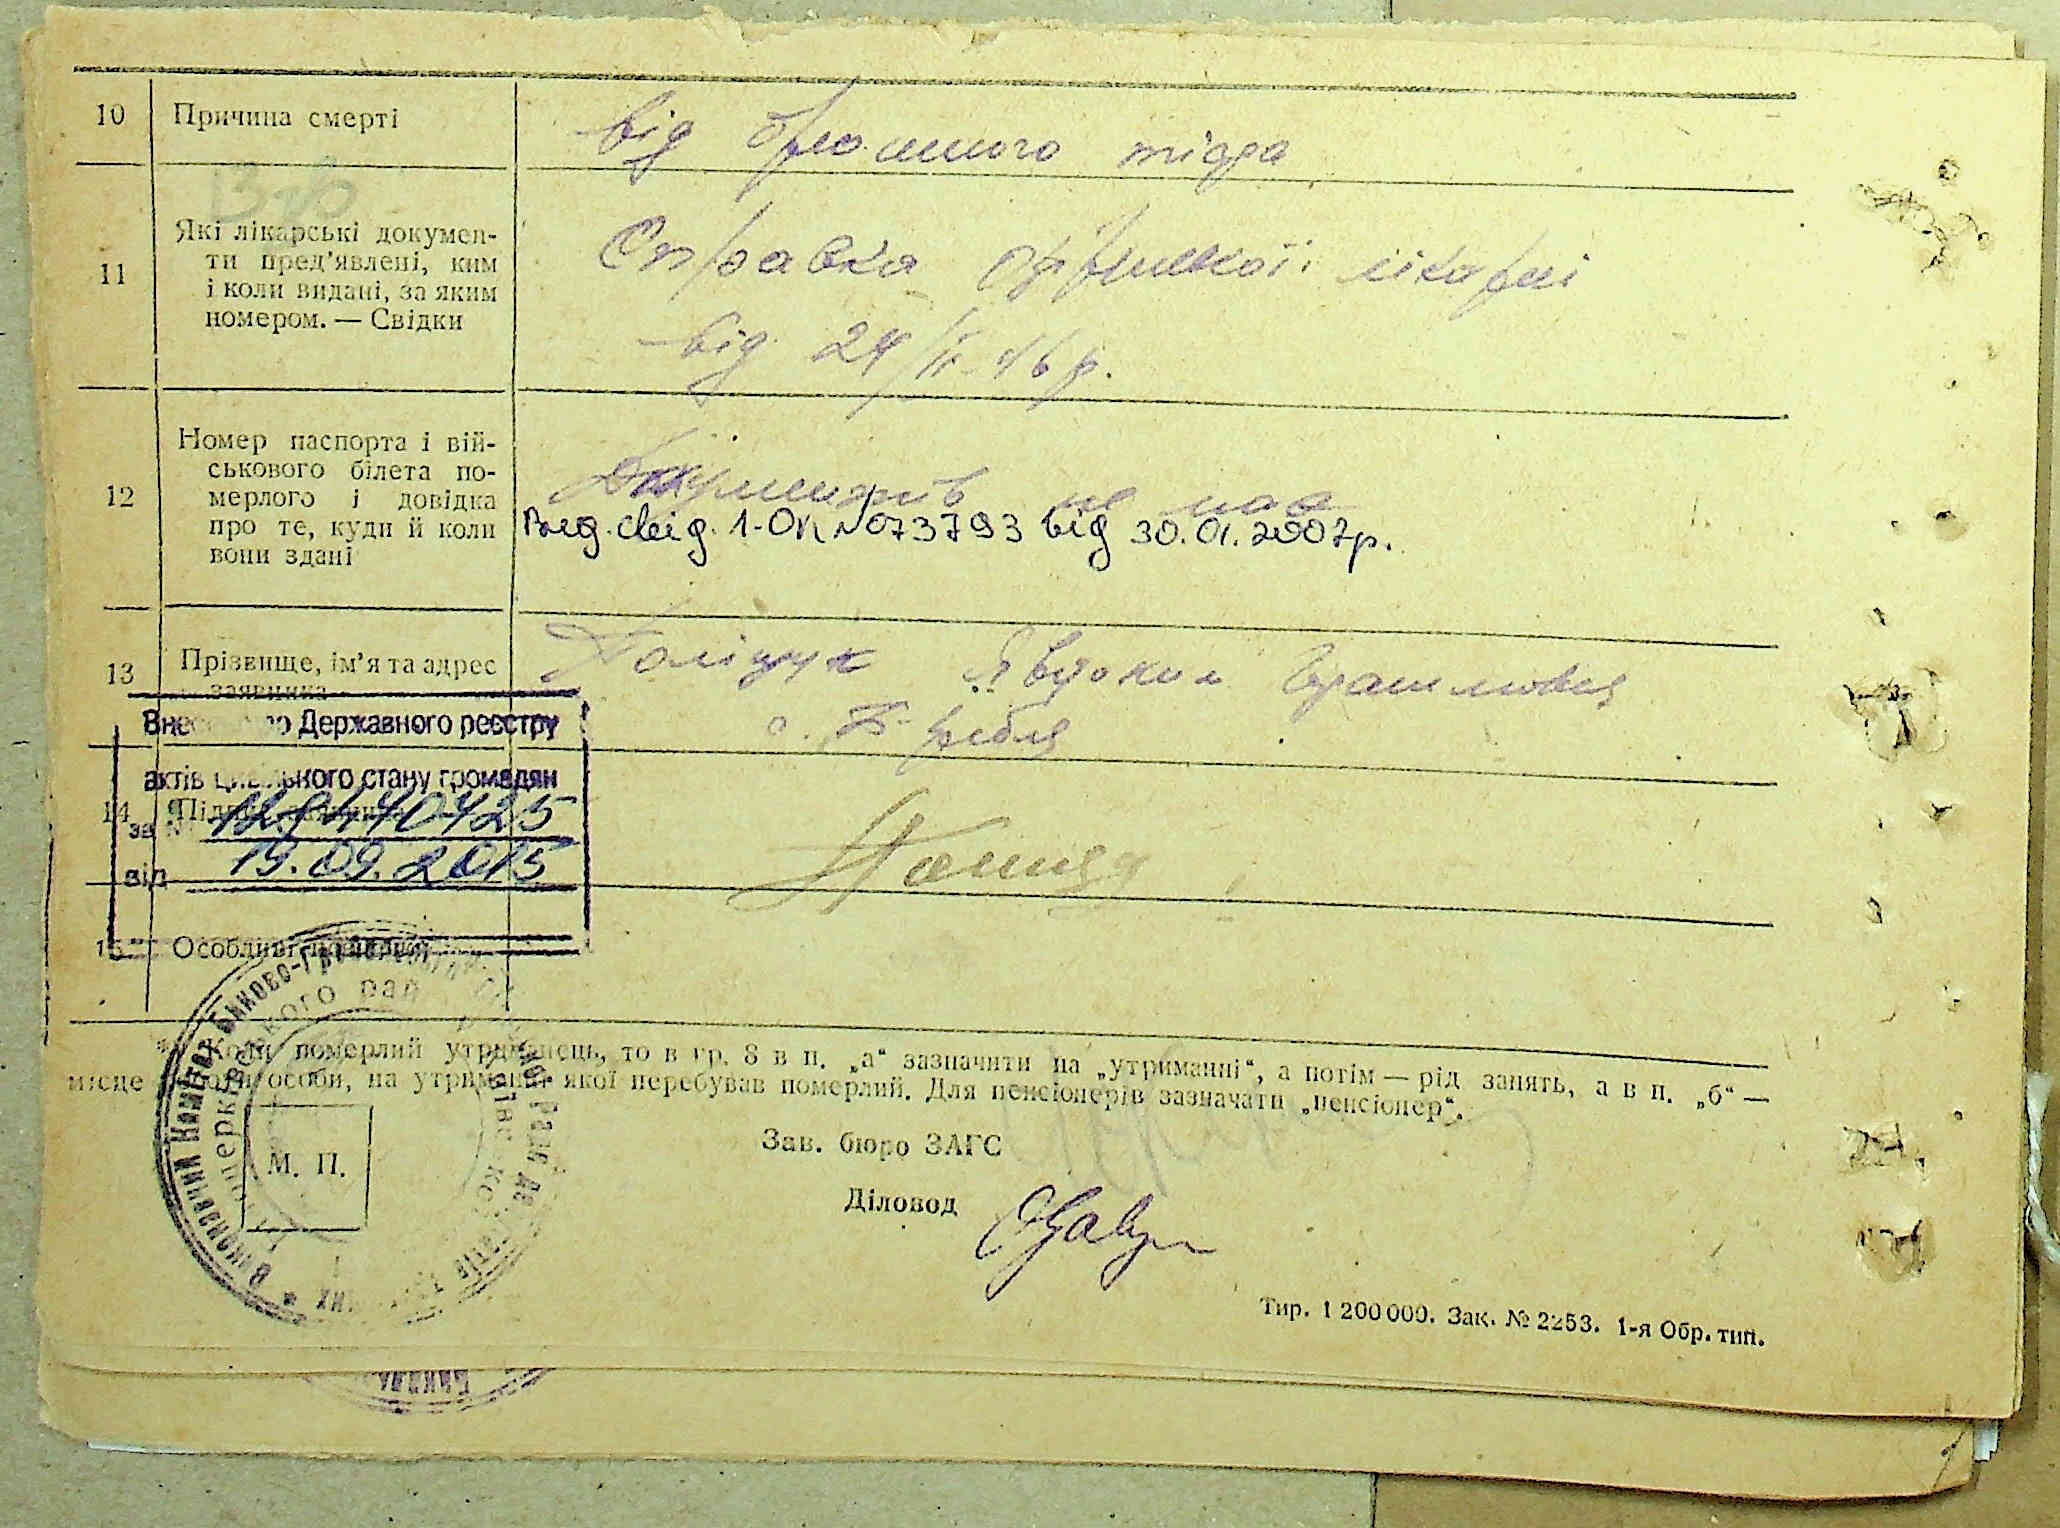 10 Причина смерті від брюшного тіфа
11 Які лікарські докумен-
ти пред’явлені, ким
і коли видані, за яким
номером. — Свідки
Справка лікарні
від 24/ 46 р.
12 Номер паспорта і вій-
ськового білета по-
мерлого і довідка
про те, куди й коли
вони здані
Документів не має
Вид. свід. 1-ОК №073793 від 30.01.2007р.
13 Прізвище, ім’я та адрес
заявника
Поліщук Явдокия
с. Б-Гребля
Внесено до Державного реєстру
актів цивільного стану громадян
за № 12.01440425
від 19.09.2015
14 Підпис заявника
15 Особливі помітки
* Коли померлий утриманець, то в гр. 8 в п. „а“ зазначити на „утриманні“, а потім — рід занять, а в п. „б“ —
місце роботи особи, на утриманні якої перебував померлий. Для пенсіонерів зазначати „пенсіонер“.
Зав. бюро ЗАГС
М. П.
Діловод
Виконавчий Комітет Биково-Гребельської Ради депутатів трудящих
Тир. 1 200 000. Зак. № 2253. 1-я Обр. тип.